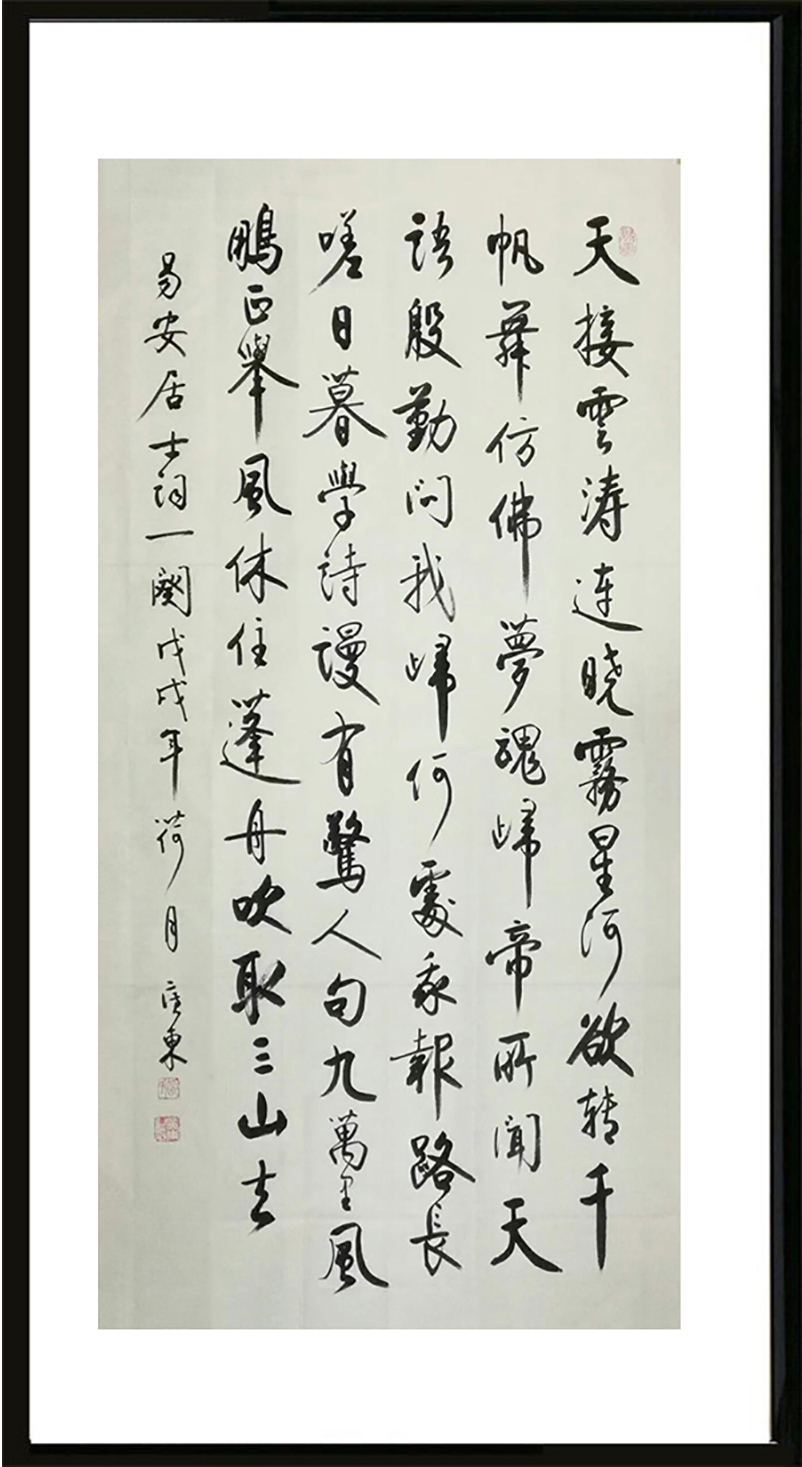 天接雲涛連曉霧星河欲轉千
帆舞仿佛夢魂歸帝所聞天
語殷勤问我歸何處我報路長
嗟日暮學詩謾有驚人句九萬里風
鵬正舉風休住蓬舟吹取三山去
易安居士词一阕戊戌年荷月广東